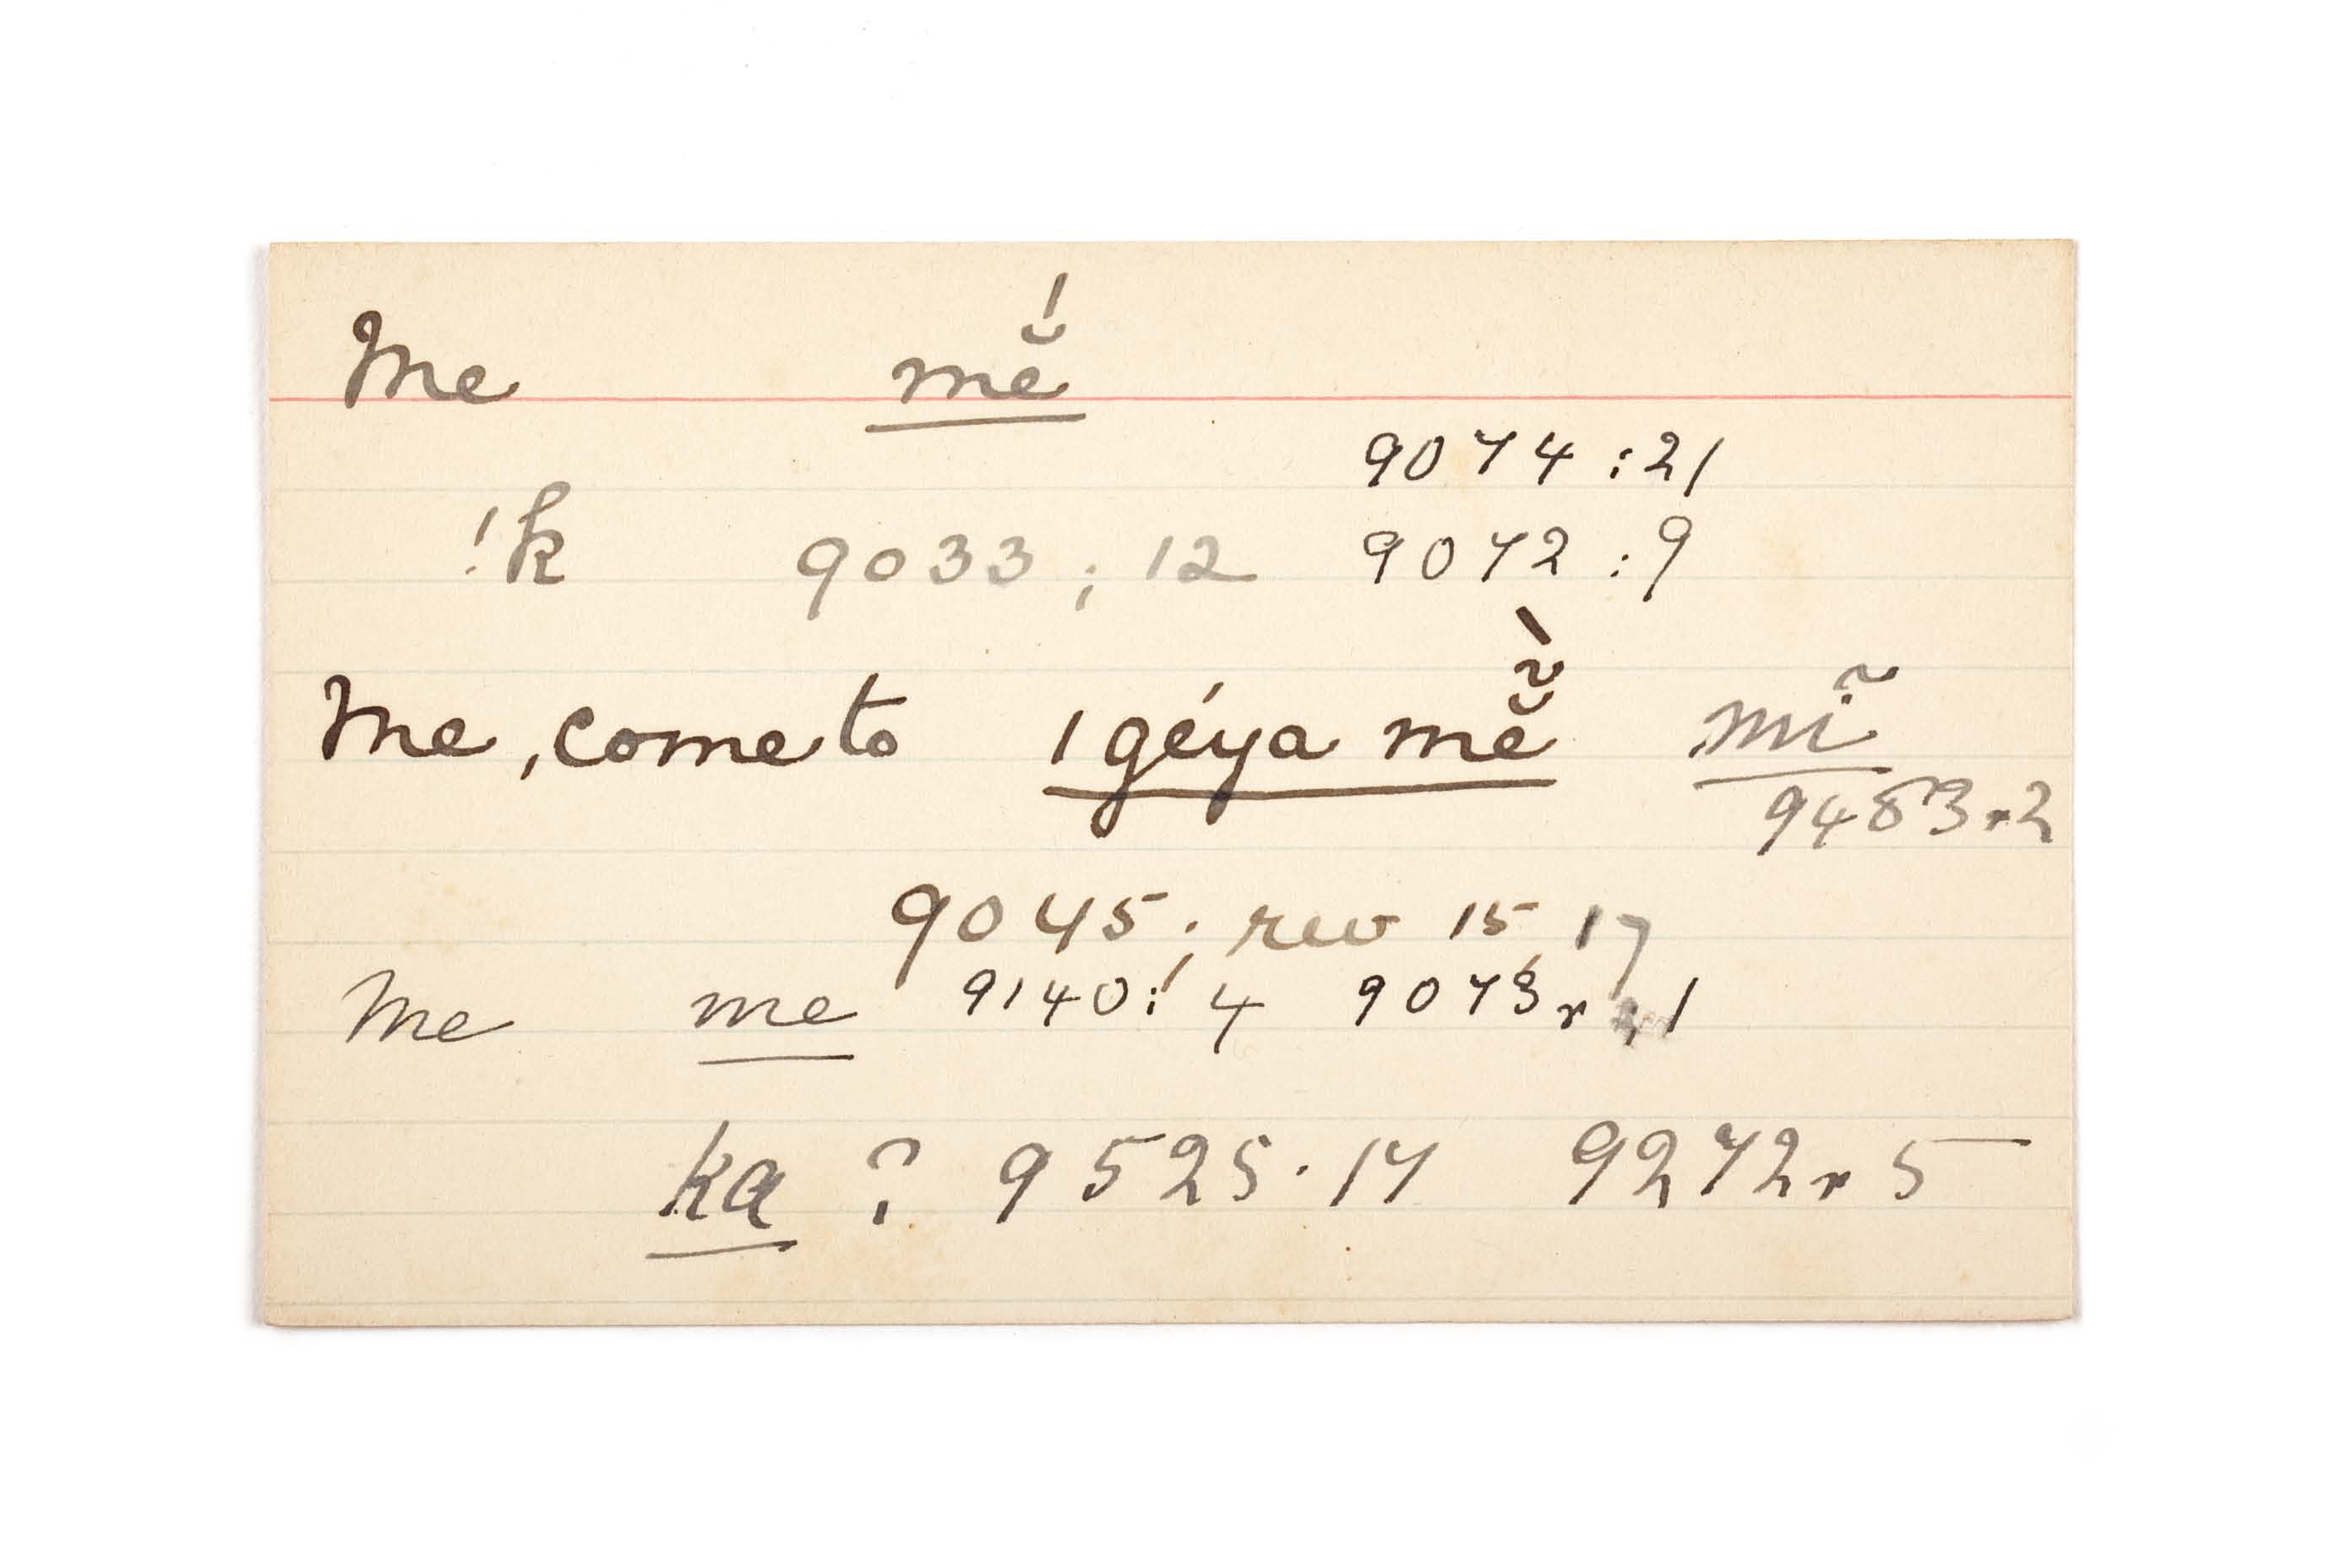 Me mĕ́
9074 : 21
!k 9033 ; 12 9072 : 9
Me, come to | géya mĕ̃̀ mĩ
9483 r. 2
9045 ; rev 15, 17
Me me 9140 : 4 9073 r 1
ka ? 9525 . 14 9272 r 5